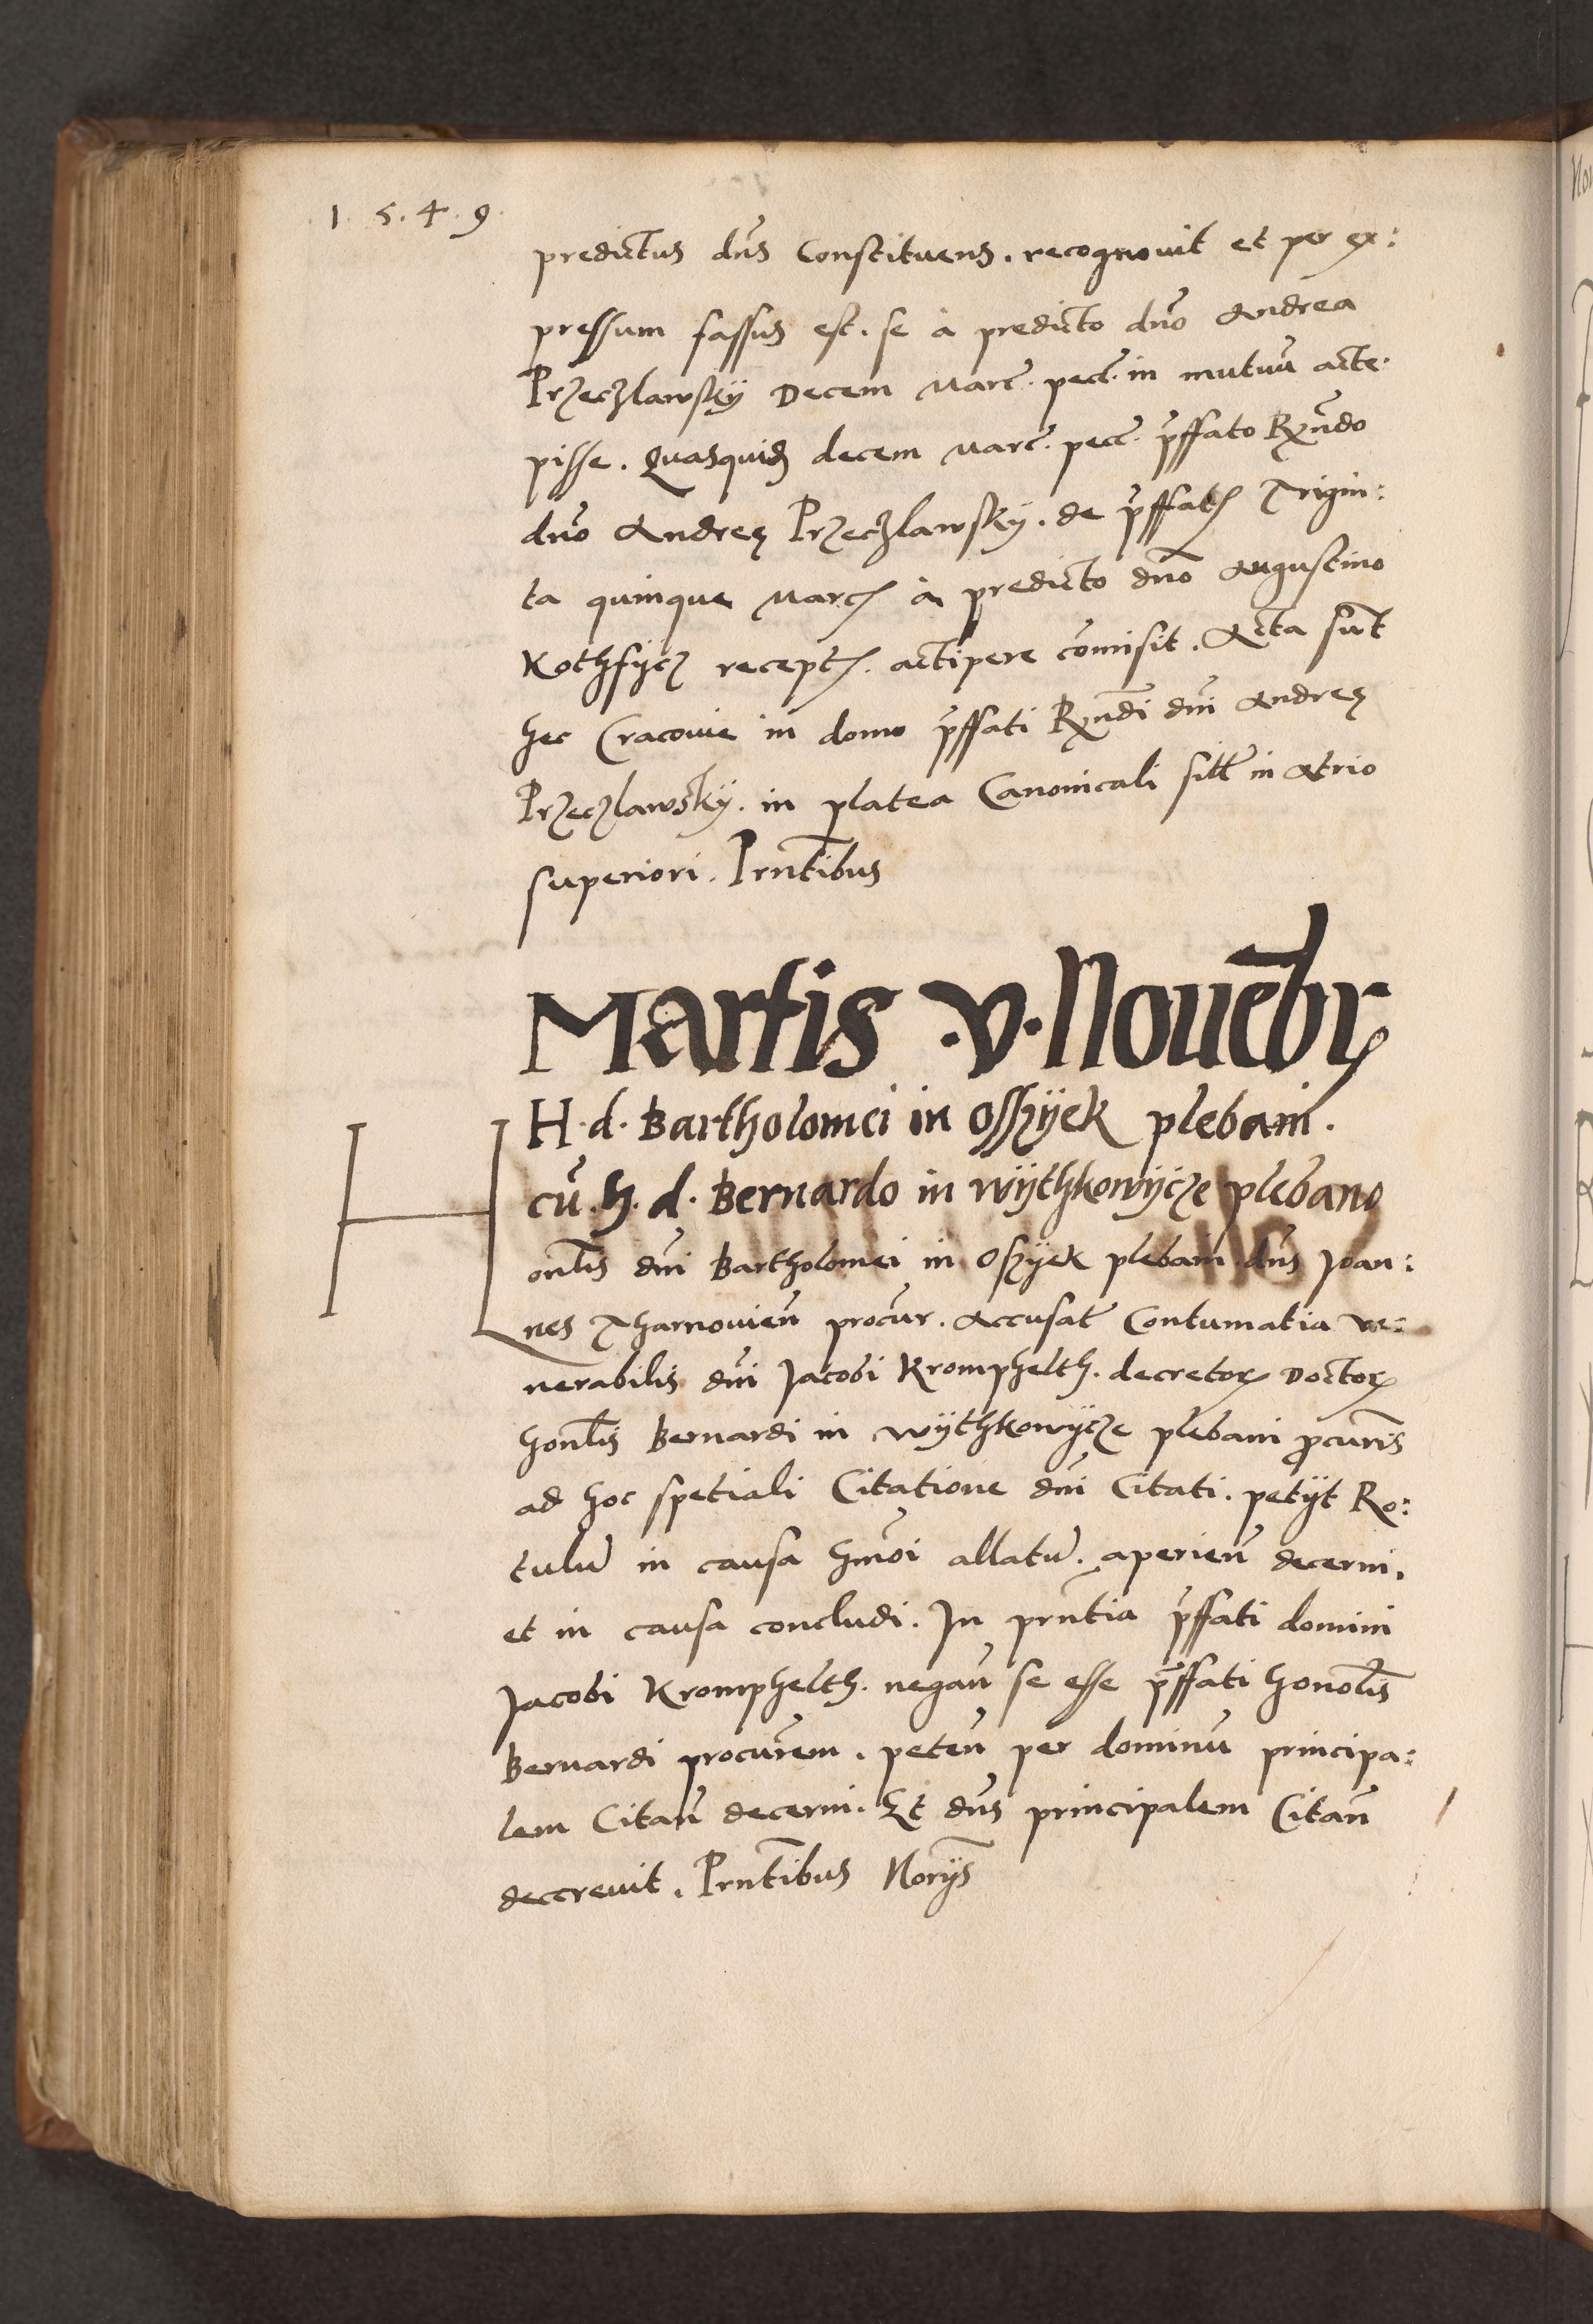 1. 5. 4. 9.
predictus dñs Constituens. recognouit et per ex:
pressum fassus est. se à predicto dño Andrea
Przeczlawskÿ Decem Marc̃. pecc̃. in mutuũ acce:
pisse. Quasquid̃ decem marc̃. pecc̃. p̃ffato Rẽndo
dño Andreę Przeczlawskÿ. de p̃ffatis Trigin:
ta quinque marcis à predicto dño Augustino
Kothfÿcz receptis. accipere cõmisit. Acta sũt
hec Cracovie in domo p̃ffati Rẽndi dñi Andreę
Przeczlawskÿ. in platea Canonicali sitt̃ in Atrio
superiori. Prñtibus
Martis .v. Nouẽbr
H. d. Bartholomei in Osszÿek plebani.
cũ. h. d. Bernardo in Wÿthkowÿcze plebano
Honl̃is dñi Bartholomei in Oszÿek plebani. dñs Joan:
nes Tharnouieñ procur̃. Accusat̃ Contumatia ve:
nerabilis dñi Jacobi Kromphelth. decretor Doctor
honl̃is Bernardi in Wÿthkowÿcze plebani p̃curris̃
ad hoc spetiali Citatione dñi Citati. petÿt Ro:
tulũ in causa hmõi allatũ. aperieñ decerni.
et in causa concludi. In prñtia p̃ffati domini
Jacobi Kromphelth. negañ se esse p̃ffati honol̃is
Bernardi procur̃em. peteñ per dominũ principa:
lem Citañ decerni. Et dñs principalem Citañ
decrevit. Prñtibus Norÿs̃